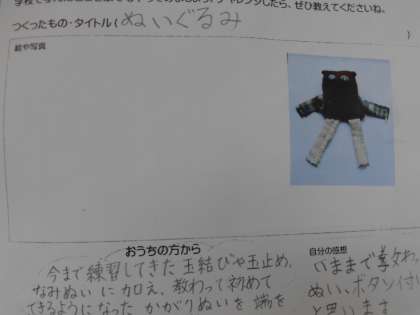 たら、ぜひ教えてくださいね。
つくったもの・タイトル( ぬいぐるみ )
絵や写真
おうちの方から
今まで練習してきた玉結びや玉止め、
なみぬいに加え、教わって初めて
できるようになったかがりぬいを端を
自分の感想
いままで学
ぬい、ボタン付
と思います